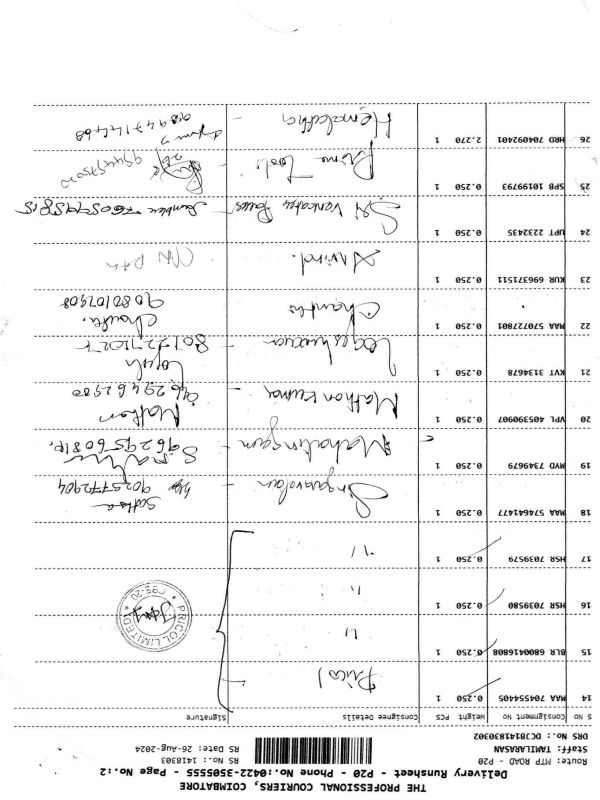 THE PROFESSIONAL COURIERS, COIMBATORE
Delivery Runsheet - P20 - Phone No.:0422-3505555 - Page No.:2
Route: MTP ROAD - P20
RS No.: 1418303
Staff: TAMILARASAN
RS Date: 26-Aug-2024
DRS No.: DCJB1418130302
S NO Consignment No Weight PCS Consignee Details Signature
14 MAA 704554405 0.250 1 Pricol
15 BLR 6800416808 0.250 1 "
16 HSR 7039580 0.250 1 "
PRICOL LIMITED
17 HSR 7039579 0.250 1 "
18 MAA 574641477 0.250 1 Singaravelan 9025772904
19 MYD 7349679 0.250 1 Mahalingam 9629560818
20 VPL 405390907 0.250 1 Mathan kumar Mathan 9629462900
21 KVT 3134678 0.250 1 Logeshwaran Logesh
22 MAA 570727801 0.250 1 Chanthi 9080107908
23 KUR 696371511 0.250 1 Arvind.
24 UPT 2232435 0.250 1 Sri Venkatesa
25 SPB 10199793 0.250 1 Prime Tools
26 HRD 704092401 2.270 1 Hemalatha 9894471468